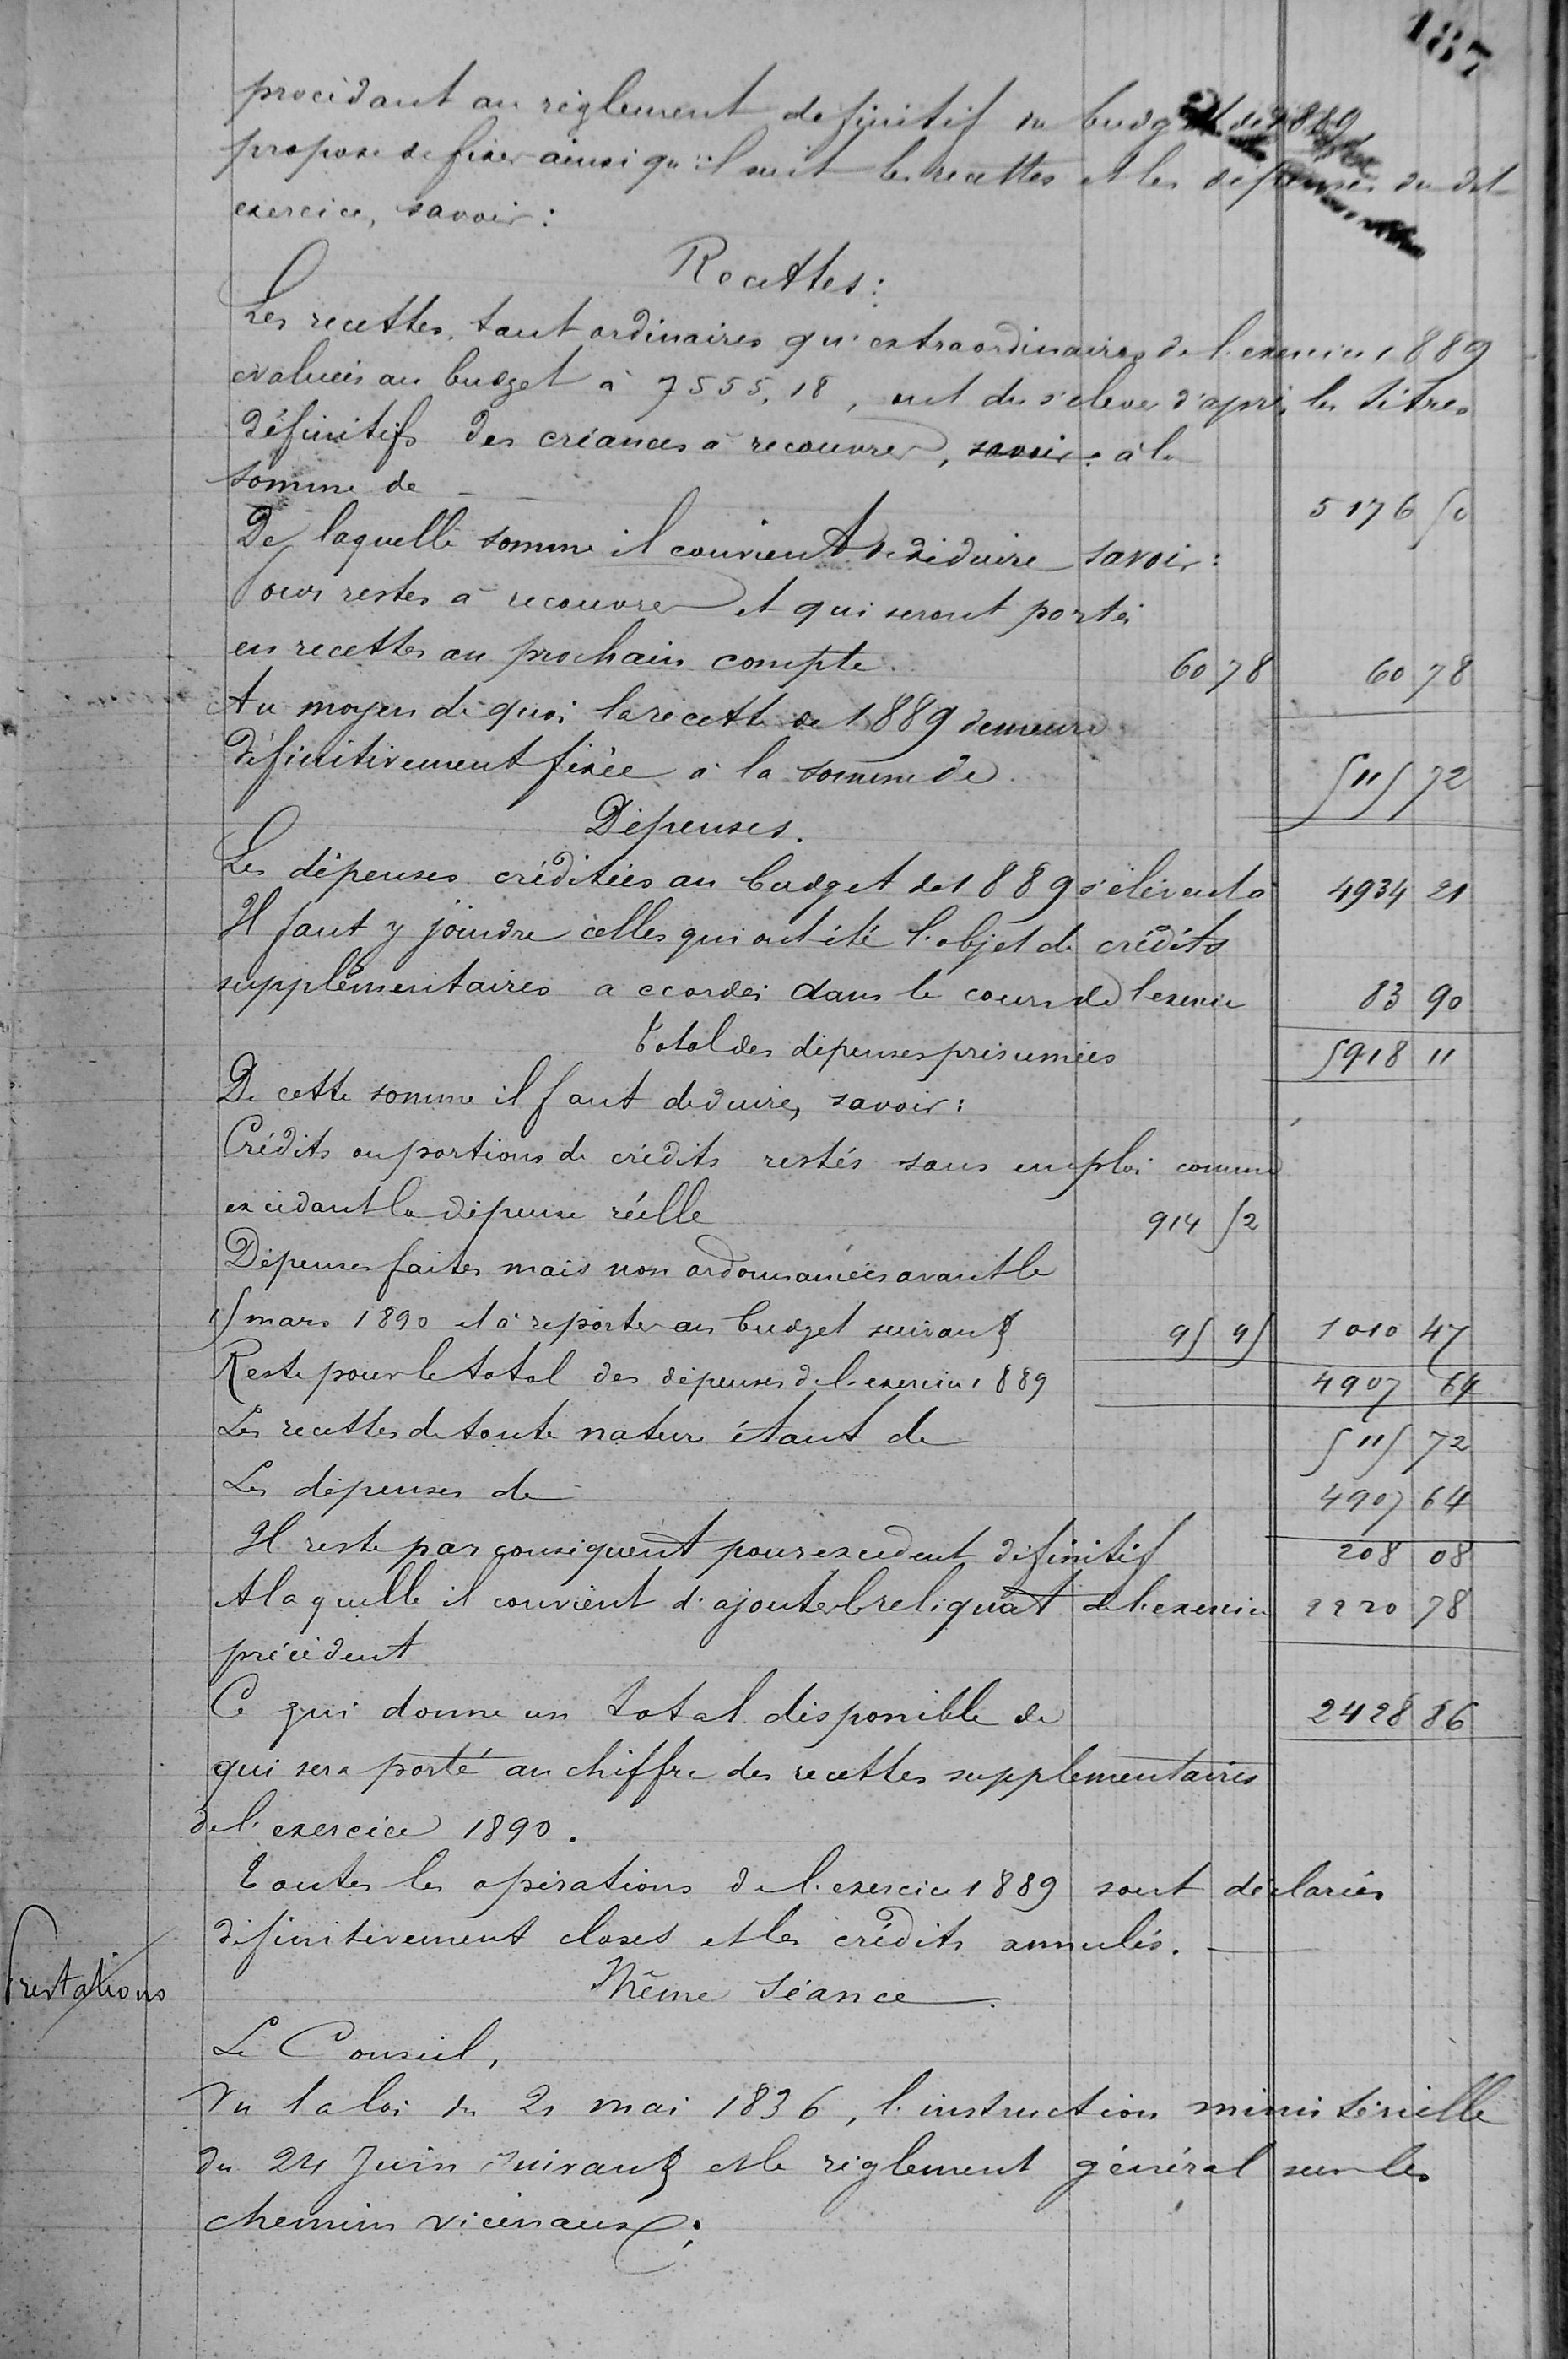 187
procédant au règlement définitif du budget de 1889
propose de fixer ainsi qu'il suit les recettes et les dépenses du dit
exercice, savoir :
Recettes :
Les recettes tant ordinaires qu'extraordinaires de l'exercice 1889
évaluées au budget à 7555,18, ont du s'élever d'après les titres
définitifs des créances à recouvrer, savoir : à la
somme de 5176 50
De laquelle somme il convient de déduire savoir :
Pour restes à recouvrer et qui seront portés
en recettes au prochain compte. 60 78 60 78
Au moyen de quoi la recette de 1889 demeure
définitivement fixée à la somme de 5115 72
Dépenses.
Les dépenses créditées au budget de 1889 s'élèvent à 4934 21
Il faut y joindre celles qui ont été l'objet de crédits
supplémentaires accordés dans le cours de l'exercice 83 90
Total des dépenses présumées 5918 11
De cette somme il faut déduire, savoir :
Crédits ou portions de crédits restés sans emploi comme
excédant la dépense réelle 914 52
Dépenses faites mais non ordonnancées avant le
15 mars 1890 et à reporter au budget suivant 95 95 1010 47
Reste pour le total des dépenses de l'exercice 1889 4907 64
Les recettes de toute nature étant de 5115 72
Les dépenses de 4907 64
Il reste par conséquent pour excédent définitif 208 08
A laquelle il convient d'ajouter le reliquat de l'exercice 2220 78
précédent
Ce qui donne un total disponible de 2428 86
qui sera porté au chiffre des recettes supplémentaires
de l'exercice 1890.
Toutes les opérations de l'exercice 1889 sont déclarées
définitivement closes et les crédits annulés.
Même Séance
Prestations
Le Conseil,
Vu la loi du 21 mai 1836, l'instruction ministérielle
du 24 Juin suivant et le règlement général sur les
chemins vicinaux ;